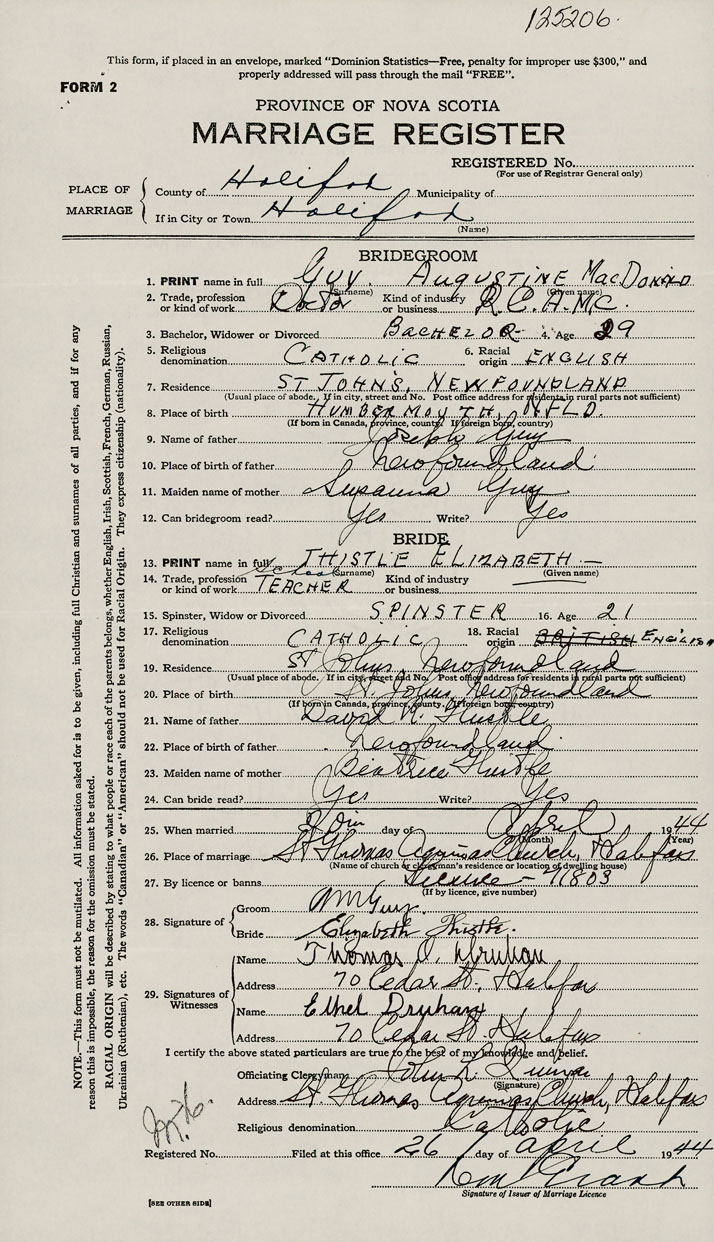 125206.
This form, if placed in an envelope, marked "Dominion Statistics—Free, penalty for improper use $300," and
properly addressed will pass through the mail "FREE".
FORM 2
PROVINCE OF NOVA SCOTIA
MARRIAGE REGISTER
REGISTERED No.
(For use of Registrar General only)
PLACE OF MARRIAGE
County of Halifax Municipality of
If in City or Town Halifax
(Name)
BRIDEGROOM
1. PRINT name in full GUY. AUGUSTINE MACDONALD
(Surname) (Given name)
2. Trade, profession or kind of work Doctor Kind of industry or business R.C.A.M.C.
3. Bachelor, Widower or Divorced BACHELOR 4. Age 29
5. Religious denomination CATHOLIC 6. Racial origin ENGLISH
7. Residence ST JOHN'S, NEWFOUNDLAND
(Usual place of abode. If in city, street and No. Post office address for residents in rural parts not sufficient)
8. Place of birth HUMBERMOUTH, NFLD.
(If born in Canada, province, county. If foreign born, country)
9. Name of father Joseph Guy
10. Place of birth of father Newfoundland
11. Maiden name of mother Susanna Guy
12. Can bridegroom read? Yes Write? Yes
BRIDE
13. PRINT name in full THISTLE ELIZABETH —
(Surname) (Given name)
14. Trade, profession or kind of work School TEACHER Kind of industry or business
15. Spinster, Widow or Divorced SPINSTER 16. Age 21
17. Religious denomination CATHOLIC 18. Racial origin BRITISH ENGLISH
19. Residence St Johns, Newfoundland
(Usual place of abode. If in city, street and No. Post office address for residents in rural parts not sufficient)
20. Place of birth St. Johns, Newfoundland
(If born in Canada, province, county. If foreign born, country)
21. Name of father David R. Thistle
22. Place of birth of father Newfoundland
23. Maiden name of mother Beatrice Thistle
24. Can bride read? Yes Write? Yes
25. When married day of April 1944
(Month) (Year)
26. Place of marriage St Thomas Aquinas Church, Halifax
(Name of church or clergyman's residence or location of dwelling house)
27. By licence or banns Licence — 71803
(If by licence, give number)
28. Signature of
Groom Guy.
Bride Elizabeth Thistle.
29. Signatures of Witnesses
Name Thomas O. Druhan
Address 70 Cedar St., Halifax
Name Ethel Druhan
Address 70 Cedar St. Halifax
I certify the above stated particulars are true to the best of my knowledge and belief.
Officiating Clergyman John L.
(Signature)
Address St. Thomas Aquinas Church, Halifax
Religious denomination Catholic
Registered No. Filed at this office 26 day of April 1944
Signature of Issuer of Marriage Licence
[SEE OTHER SIDE]
NOTE.—This form must not be mutilated. All information asked for is to be given, including full Christian and surnames of all parties, and if for any
reason this is impossible, the reason for the omission must be stated.
RACIAL ORIGIN will be described by stating to what people or race each of the parents belongs, whether English, Irish, Scottish, French, German, Russian,
Ukrainian (Ruthenian), etc. The words "Canadian" or "American" should not be used for Racial Origin. They express citizenship (nationality).